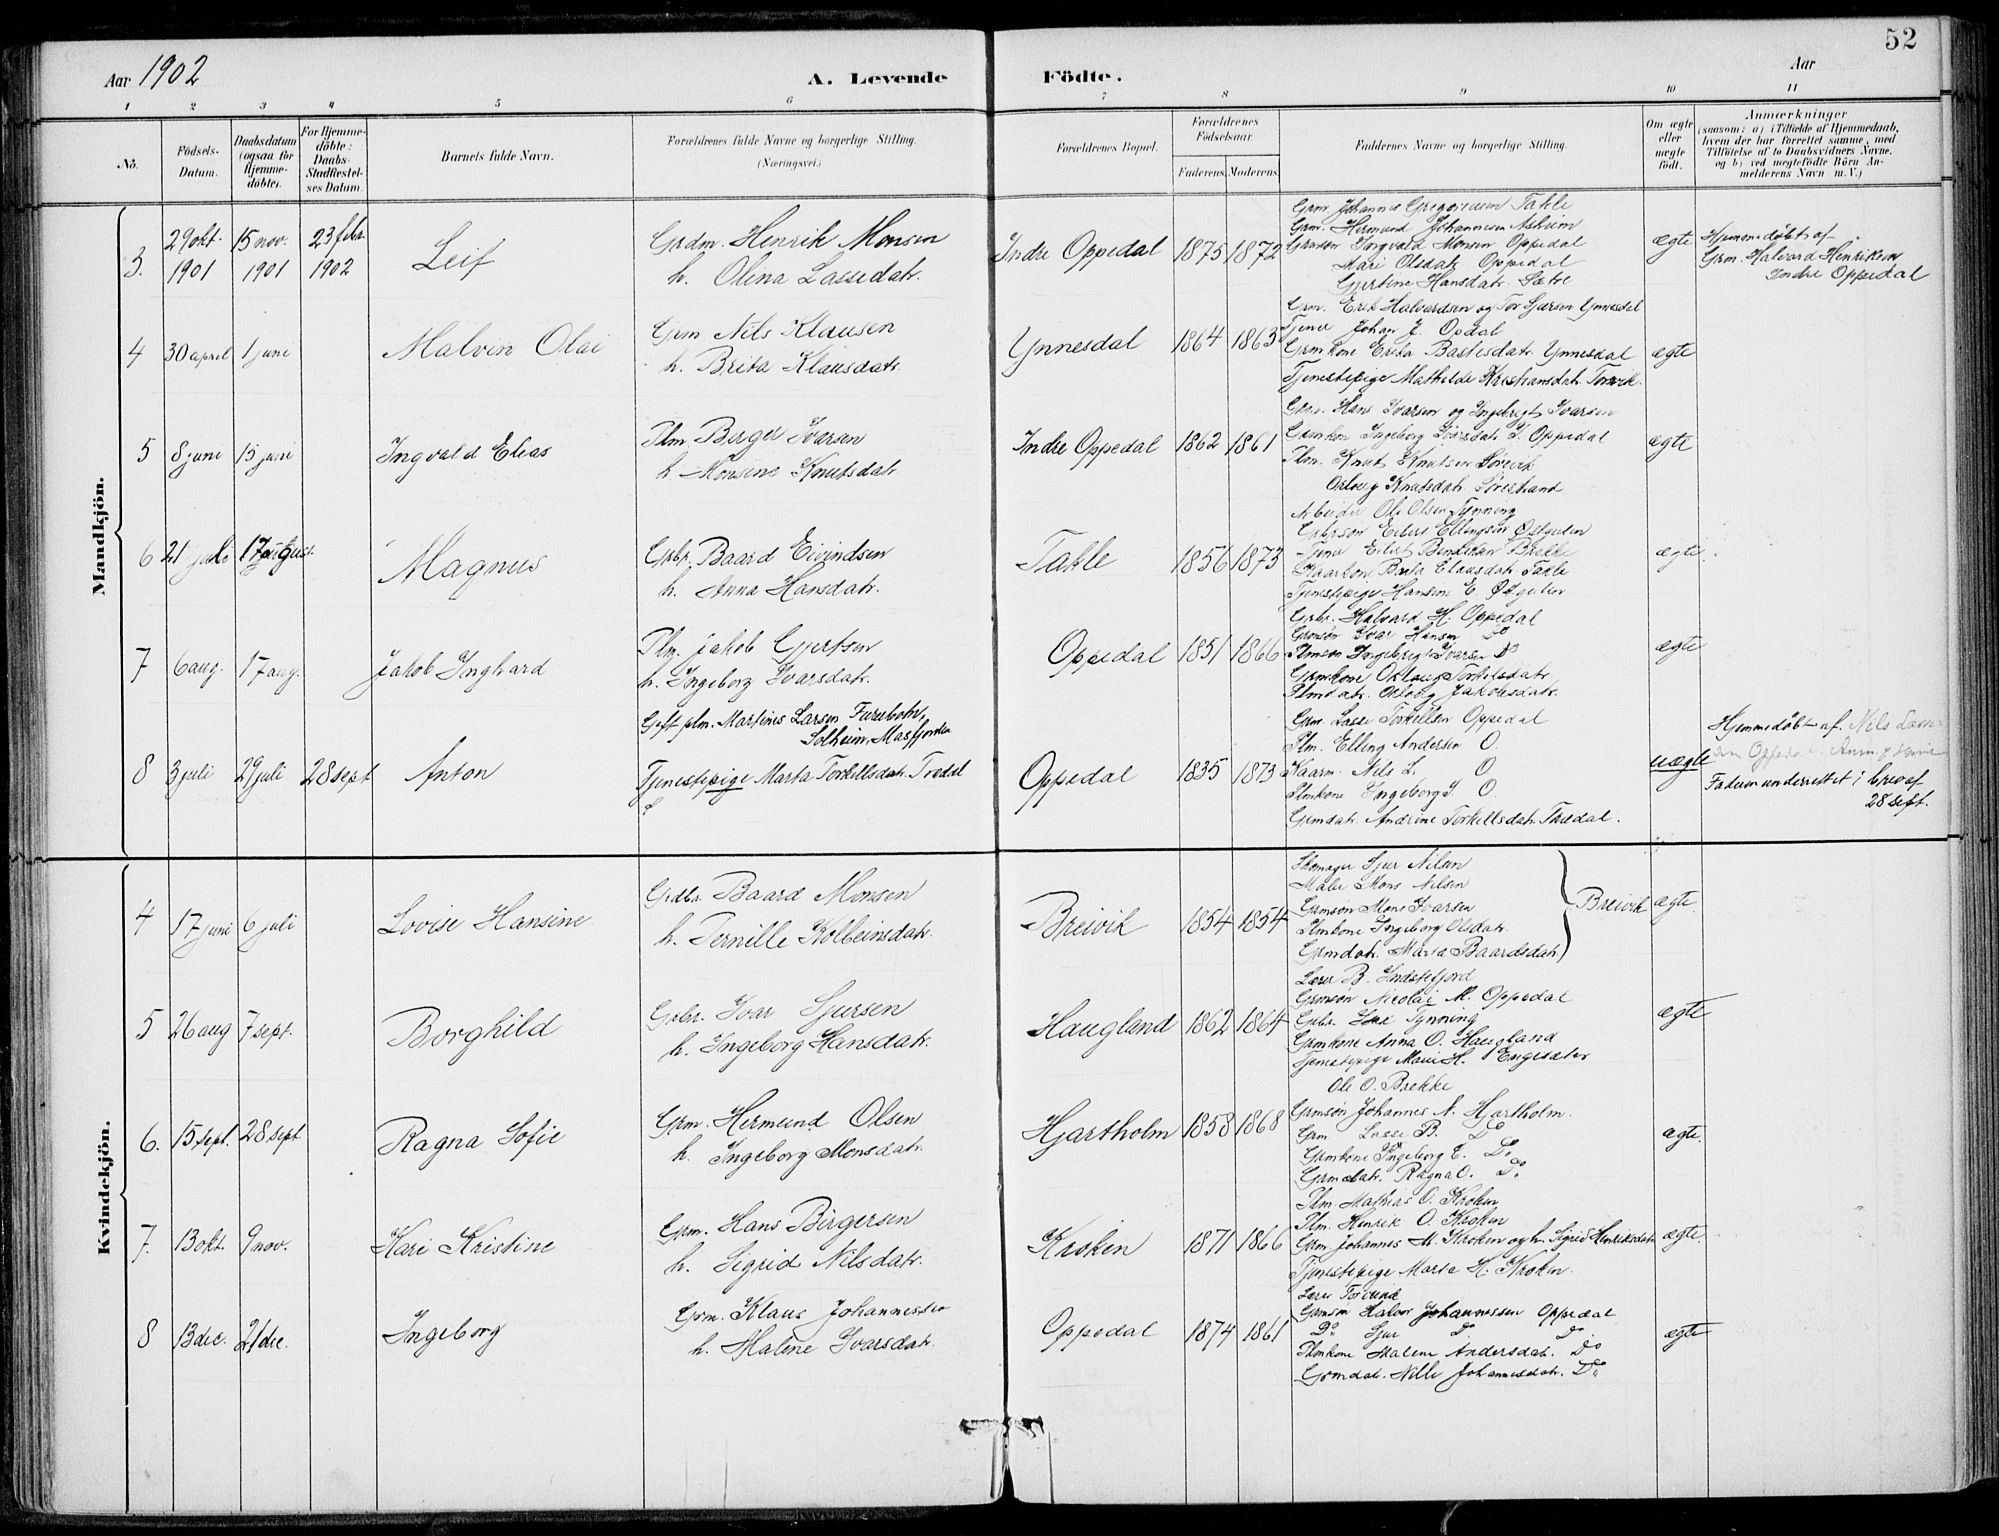 52
Aar 1902 A. Levende Födte. Aar
1 2 3 4 5 6 7 8 9 10 11
No.
Födsels-
Datum.
Daabsdatum
(ogsaa for
Hjemme-
döbte).
For Hjemme-
döbte:
Daabs-
Stadfæstel-
ses Datum.
Barnets fulde Navn.
Forældrenes fulde Navne og borgerlige Stilling.
(Næringsvei.)
Forældrenes Bopæl.
Forældrenes
Födselsaar.
Faderens. Moderens.
Faddernes Navne og borgerlige Stilling.
Om ægte
eller
uægte
födt.
Anmærkninger
(saasom: a) i Tilfælde af Hjemmedaab,
hvem der har forrettet samme, med
Tilföielse af to Daabsvidners Navne,
og b) ved uegtefödte Börn An-
melderens Navn m. V.)
Mandkjön.
3. 29 okt. 1901 15 nov. 1901 23 febr. 1902 Leif
Grdm. Henrik Monsen
h. Olina Lassedatr.
Indre Oppedal 1875 1872
Grm. Johannes Gregoriussen Takle
Grm. Hermund Johannesen Asheim
Grmsøn Ingvald Monsen Oppedal
Mari Olsdatr. Oppedal
Gjertine Hansdatr. Sætre
ægte
Hjemmedøbt af
Grm. Halvard Henriksen
Indre Oppedal
4 30 april 1 juni Malvin Olai
Grm Nils Klausen
h. Brita Klausdatr.
Ynnesdal 1864 1863
Grm. Erik Halvardsen og Tor Sjursen Ynnesdal
Tjener Johan J. Opdal
Grmkone Brita Bastesdatr. Ynnesdal
Tjenestepige Mathilde Kristiansdatr. Torvik.
ægte
5 8 juni 15 juni Ingvald Elias
Plm Birger Ivarsen
h. Monsine Knutsdatr.
Indre Oppedal 1862 1861
Grm. Hans Ivarsen og Ingebrigt Ivarsen
Grmkon Ingeborg Ivarsdatr. I. Oppedal
Plm. Knut Knutsen Sørevik
Knutsdatr. Sørestrand
ægte
6 21 jule 17 august. Magnus
Grbr. Baard Eivindsen
h. Anna Hansdatr.
Takle 1856 1873
Arbeider Ole Olsen Tynning
Ellingsen Østgulen
Tjener Eilert Brekke
Kaarkone Brita Elausdatr. Takle
Tjenestepige Hansine E. Østgulen
ægte.
7 6 aug. 17 aug. Jakob Inghard
Plm. Jakob Gjertsen
h. Ingeborg Ivarsdatr.
Oppedal 1851 1866
Grbr. Halvard H. Oppedal
Grmsøn Ivar Hansen Do
Plmsøn Ingebrigt Ivarsen Do
Grmkone Oslaug Torkelsdatr.
Plmdatr. Oslaug Jakobsdatr.
ægte
8 3 juli 29 juli 28 sept Anton
Gift plm. Martines Larsen Furebotn,
Solheim, Masfjorden
Tjenestepige Marta Torkellsdatr. Trædal
Oppedal 1835 1873
Grm Lasse Torkellsen Oppedal
Plm. Elling Andersen O.
Kaarm. Nils L. O
Plmkone Ingeborg I. O.
Grmdatr. Andrine Torkellsdatr. Trædal.
uægte
Hjemmedøbt af Nils Lasse-
Faderen underrettet i brev af
28 sept.
Kvindekjön.
4 17 juni 6 juli Lovise Hansine
Grdbr. Baard Monsen
h. Pernille Kolbeinsdatr.
Breivik 1854 1854
Skomager Sjur Nilsen
Maler Mons Nilsen
Grmsøn Mons Ivarsen
Plmkone Ingeborg Olsdatr.
Grmdatr. Marta Baardsdatr.
Breivik
ægte.
5 26 aug 7 sept. Borghild
Grbr. Ivar Sjursen
h. Ingeborg Hansdatr.
Haugland 1862 1864
Lærer B. Indrefjord
Grmsøn Nicolai M. Oppedal
Grbr. Tynning
Grmkone Anna O. Haugland
Tjenestepige Mari H. Engesæter
ægte
6. 15 sept. 28 sept Ragna Sofie
Grm. Hermund Olsen
h. Ingeborg Monsdatr.
Hjartholm 1858 1868
Ole O. Brekke
Grmsøn Johannes N. Hjartholm.
Grm Lasse B. Do
Grmkone Ingeborg E. Do.
Grmdatr. Ragna O. Do.
ægte.
7. 13 okt. 9 nov. Kari Kristine
Grm. Hans Birgersen
h. Sigrid Nilsdatr.
Kroken 1871 1866
Plm Mathias O. Kroken
Plm. Henrik O. Kroken
Grm Johannes M. Kroken og h. Sigrid Henriksdatr
Tjenestepige Marta H. Kroken.
ægte.
8 13 dec. 21 dec. Ingeborg
Grm. Klaus Johannessen
h. Malene Ivarsdatr.
Oppedal 1874 1861
Lærer Torvund
Grmsøn Halvor Johannessen Oppedal
Do. Sjur Do Do.
Plmkone Malene Andersdatr. Do
Grmdatr. Nille Johannesdatr. Do.
ægte